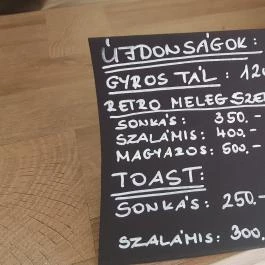 ÚJDONSÁGOK:
GYROS TÁL: 120
RETRO MELEGSZE
SONKÁS: 350.-
SZALÁMIS: 400.-
MAGYAROS: 500.-
TOAST:
SONKÁS: 250.-
SZALÁMIS: 300.